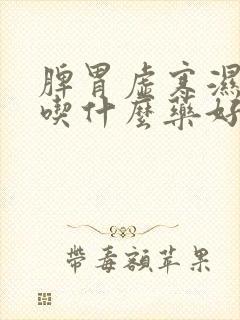 脾胃虛寒濕
喫什麼藥好
帶毒額苹果